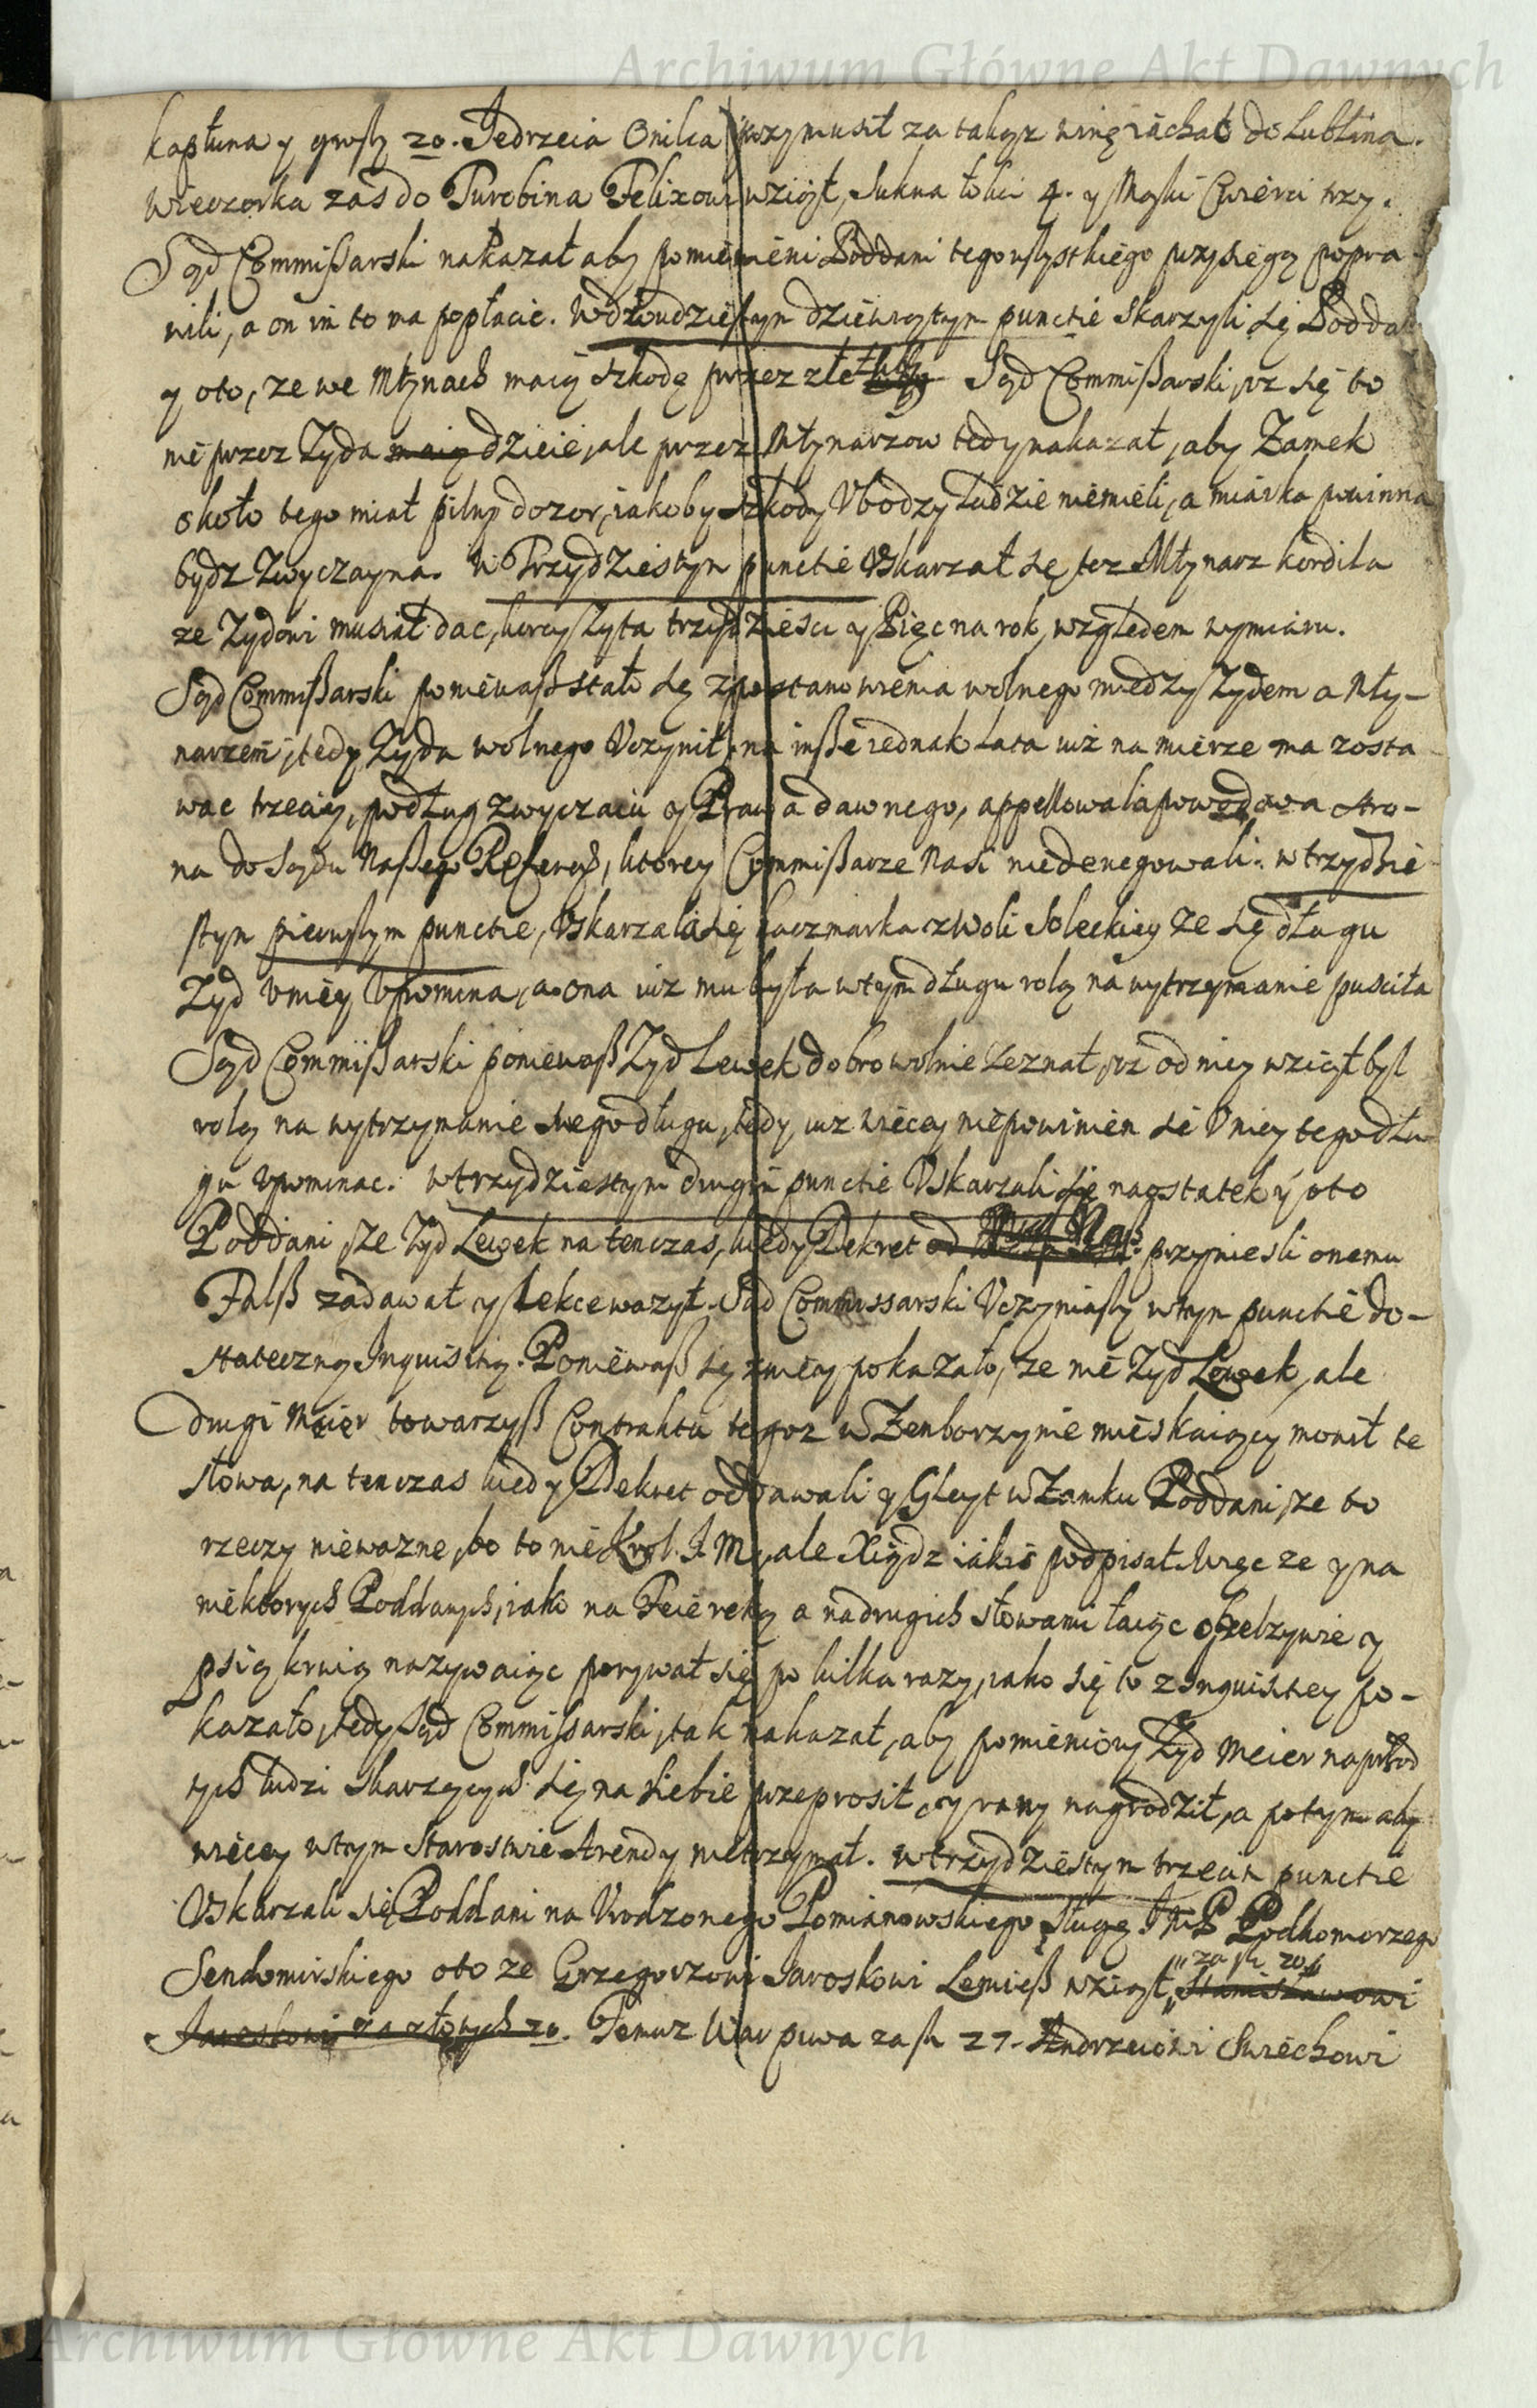 Archiwum Główne Akt Dawnych
kapłuna y grosz 20. Jędrzeia Onilca przymusił za takąz winę iachać do Lublina.
Wieczorka zaś do Turobina Felixowi wziął, Sukna łokci 4. y Mąki Cwierci trzy.
Sąd Commißarski nakazał aby pomienieni Poddani tego wszystkiego przysięgą popra
wili, a on im to ma popłacic. W dwudziestym dziewiątym punctie skarzyli się Podda
y oto, ze we Młynach maią szkodę przez złe Sąd Commißarski, yz się to
nie przez Zyda maią dzieie, ale przez Młynarzow tedy nakazał, aby Zamek
około tego miał pilny dozor, iakoby szkody Vbodzy Ludzie niemieli, a miarka powinna
bydz Zwyczayna. W Trzydziestym punctie Vskarzał się tez Młynarz kordila
ze Zydowi musiał dac, korcy Zyta trzydziesci y Pięc na rok, względem wymiaru.
Sąd Commißarski poniewaß stało się z postanowienia wolnego między Zydem a Mły-
narzem, tedy Zyda wolnego Vczynił, na inße iednak Lata iuż na mierze ma zosta
wac trzeciey, podług zwyczaiu y Prawa dawnego, appellowała powodowa stro-
na do Sądu Naßego Referen, ktorey Commißarze Nasi niedenegowali. w trzydzie
stym pierwszym punctie, Vskarzała się kaczmarka z Woli Soleckiey ze się długu
Zyd v niey Vpomina, a ona iuz mu była w tym długu rolą na wytrzymanie pusciła
Sąd Commißarski poniewaß Zyd Lewek dobrowolnie zeznał, yz od niey wziął był
rolą na wytrzymanie swego długu, tedy iuz więcey niepowinien się V niey tego dłu
gu vpominac. w trzydziestym drugim punctie Vskarzali się naostatek y oto
Poddani, ze Zyd Lewek na tenczas, kiedy Dekret od Naß. przyniesli onemu
Falß zadawał y Lekcewazył. Sąd Commissarski Vczyniwszy w tym punctie do-
stateczną Inquisitią. Poniewaß się z niey pokazało, ze nie Zyd Lewek, ale
drugi Meier towarzyß Contraktu tegoz w Zemborzynie mieskaiący mowił te
słowa, na tenczas kiedy Dekret oddawali y Gleyt w Zamku Poddani, ze to
rzeczy niewazne, bo to nie Krol. J. M., ale Xiądz iakis podpisał. Więc ze y na
niektorych Poddanych, iako na Feierekę a na drugich słowami łaiąc obelzywie y
psią krwią nazywaiąc porywał się po kilka razy, iako się to z Inquisitiey po-
kazało, tedy Sąd Commissarski, tak nakazał, aby pomieniony Zyd Meier naprzod
tych ludzi skarzących się na siebie przeprosił, y rany nagrodził, a potym aby
więcey w tym Starostwie Arendy nietrzymał. w trzydziestym trzecim punctie
Vskarzali się Poddani na Vrodzonego Pomianowskiego sługę JmP Podkomorzego
Sendomirskiego oto ze Grzegorzowi Jaroskowi Lemieß wziął, za zł. 20, Stanisławowi
Jaroskowi za złotych 20. Temuz War piwa za zł 27. Andrzeiowi Swiechowi
Archiwum Główne Akt Dawnych